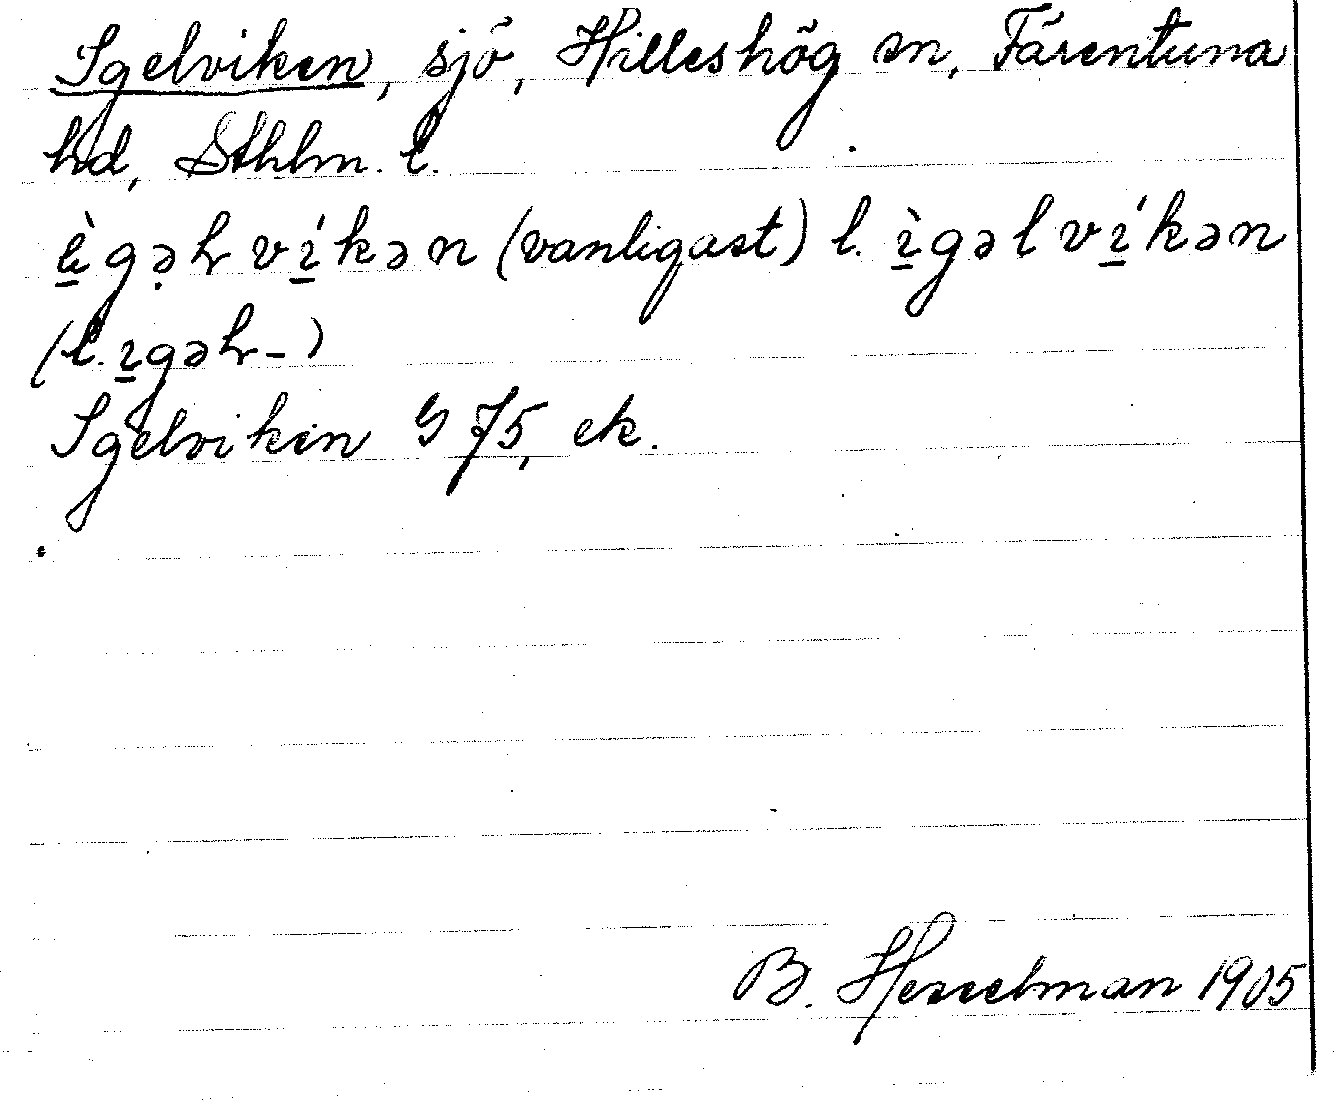 Igelviken, sjö, Hilleshög sn, Färentuna
hd, Sthlm. l.
ı̀gəɫ vı́kən (vanligast) l. ı̀gəl vı́kən
(l. ıgəɫ-)
Igelviken G 75, ek.
B. Hesselman 1905